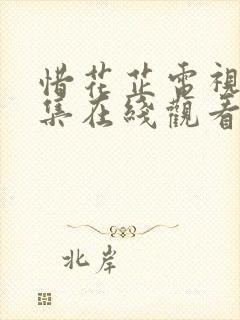 惜花芷電視
集在綫觀看
北岸